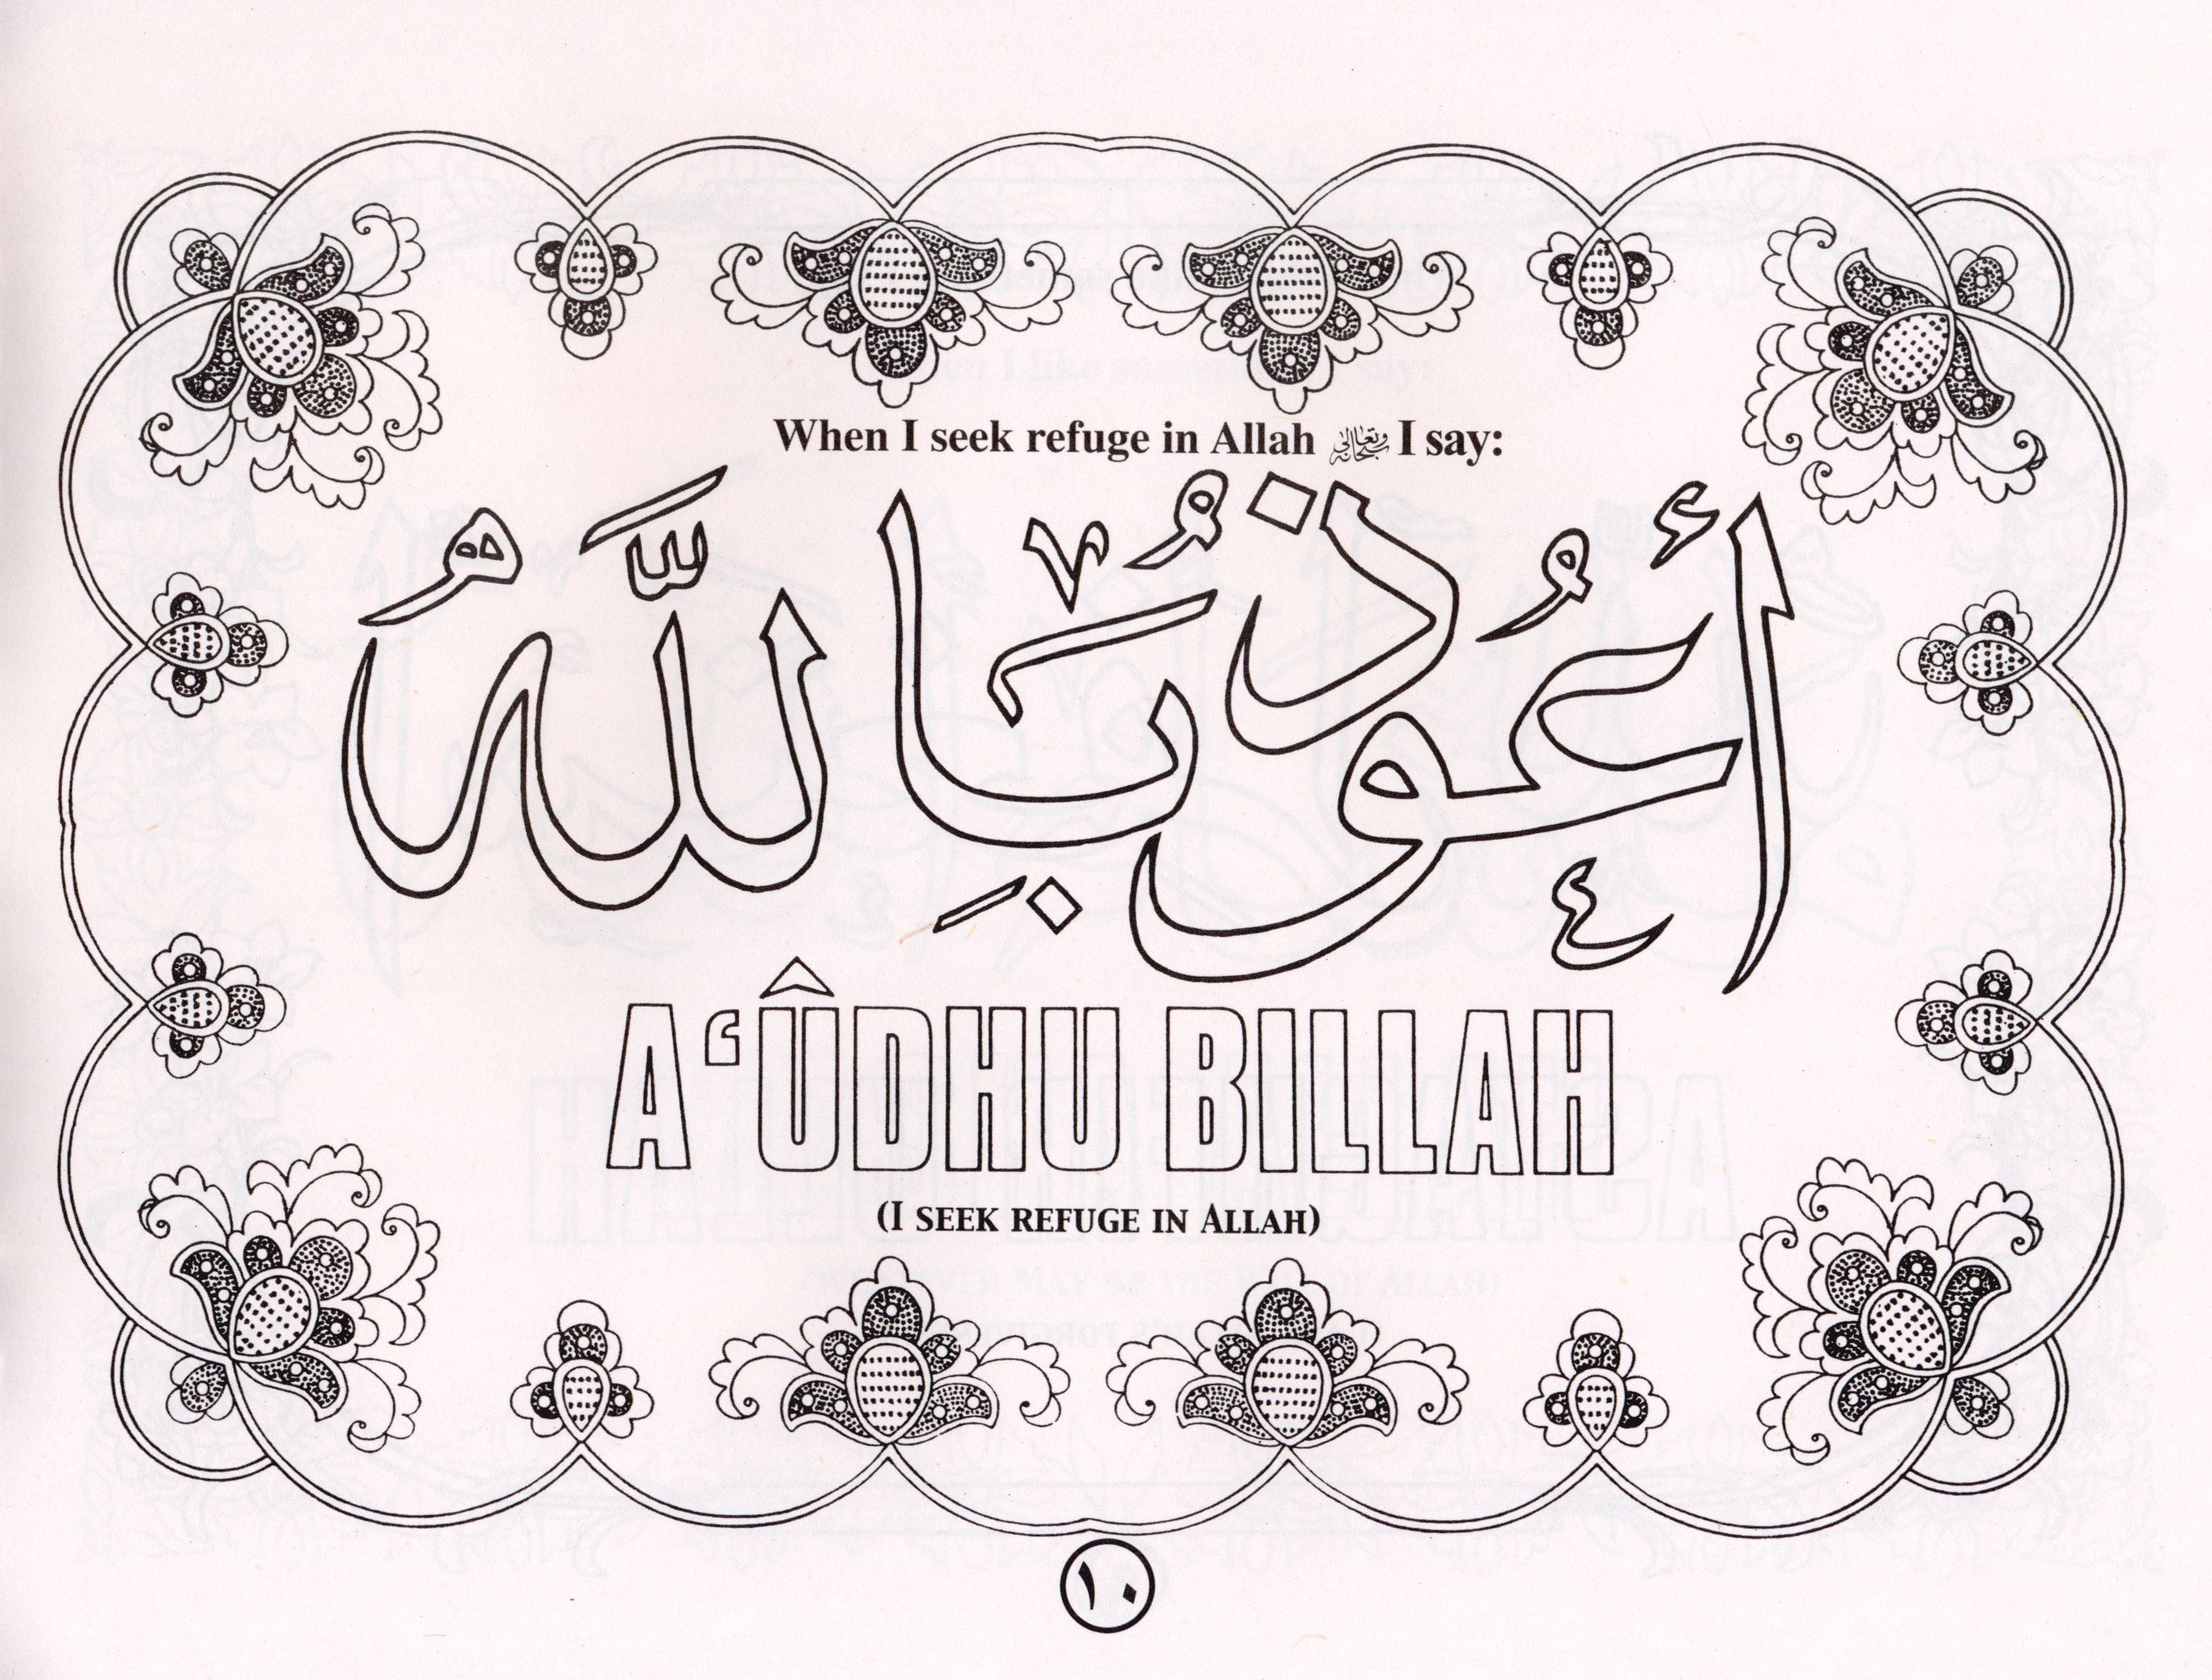 When I seek refuge in Allah سبحانه وتعالى I say:
أَعُوذُ بِاللَّهِ
A‘ÛDHU BILLAH
(I SEEK REFUGE IN ALLAH)
١٠